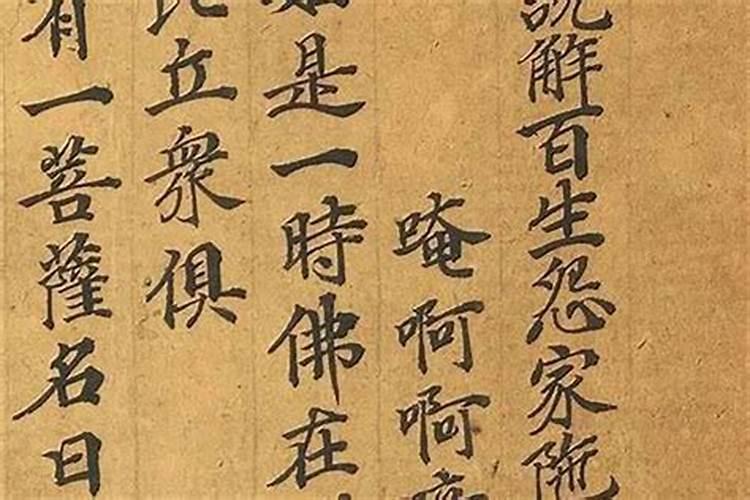 説解百生怨家陁
唵啊啊
如是一時佛在
比丘衆俱
有一菩薩名曰